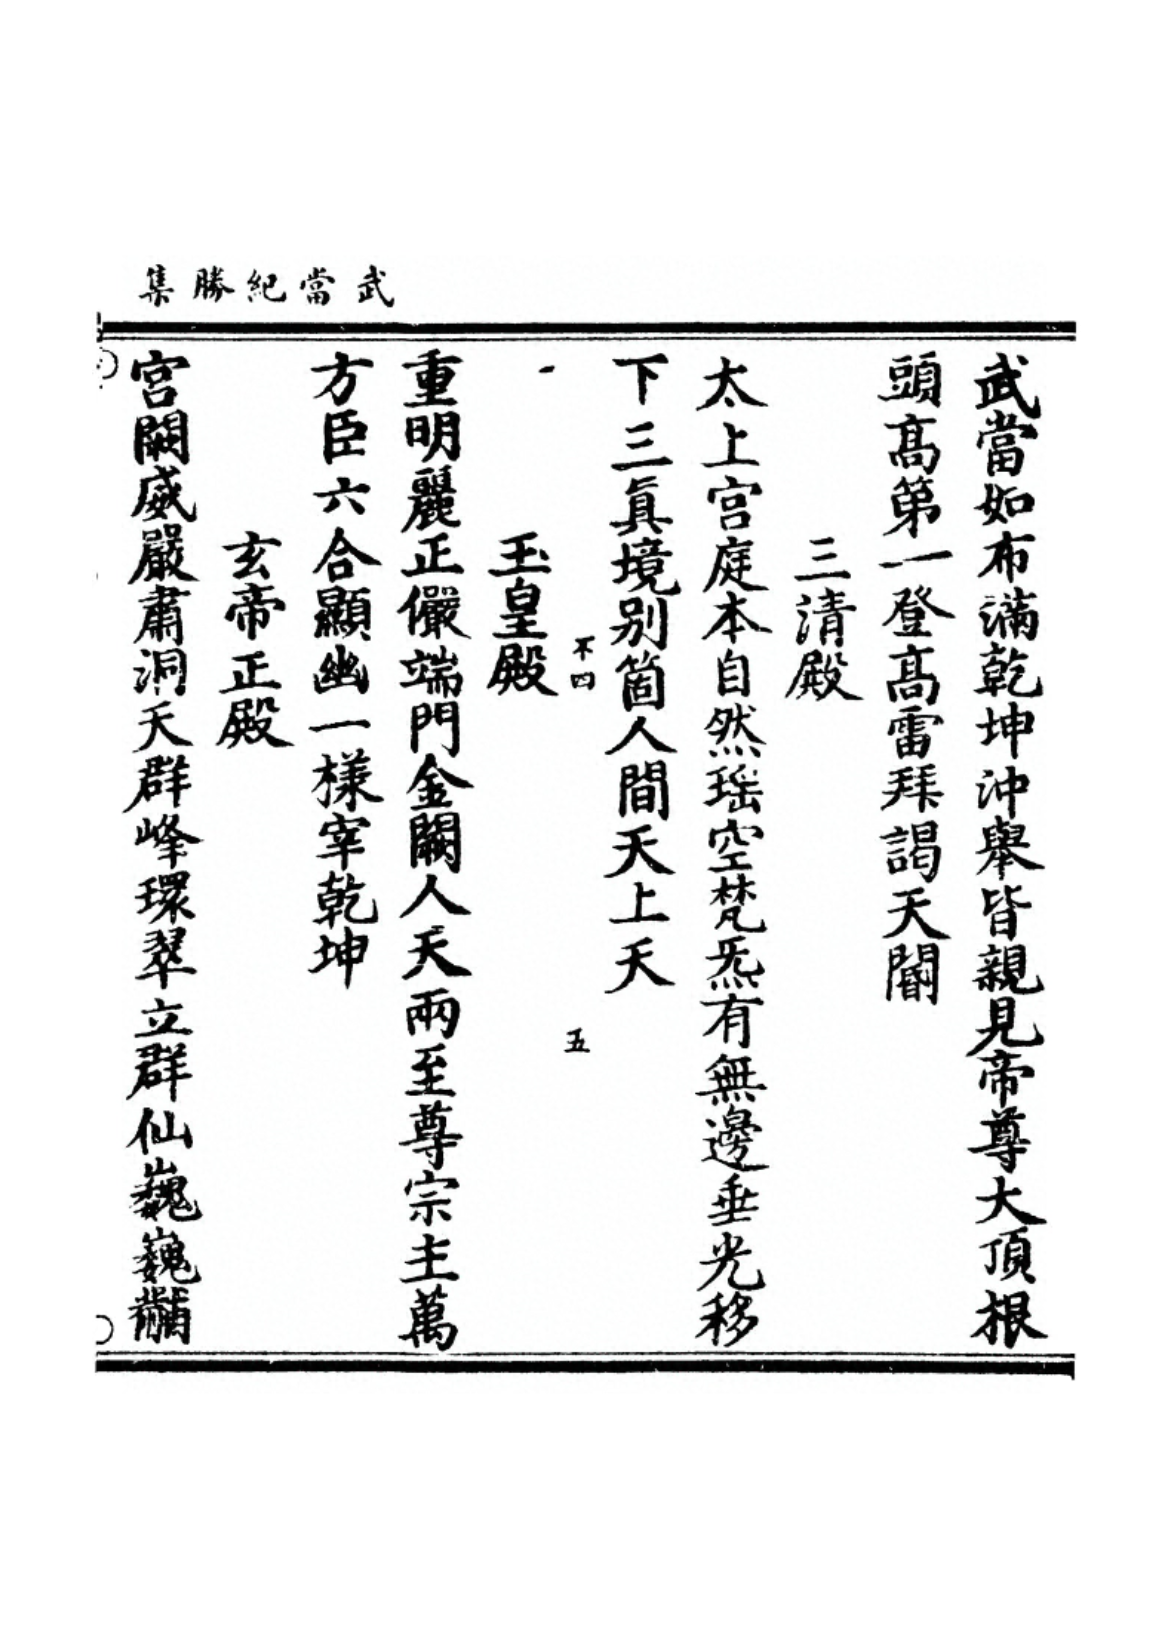 武當紀勝集
武當如布滿乾坤沖舉皆親見帝尊大頂根
頭髙第一登髙雷拜謁天閽
三清殿
太上宫庭本自然瑶空梵炁有無邊垂光移
下三眞境别箇人間天上天
不四
五
玉皇殿
重明麗正儼端門金闕人天兩至尊宗主萬
方臣六合顯幽一樣宰乾坤
玄帝正殿
宫闕威嚴肅洞天群峰環翠立群仙巍巍黼